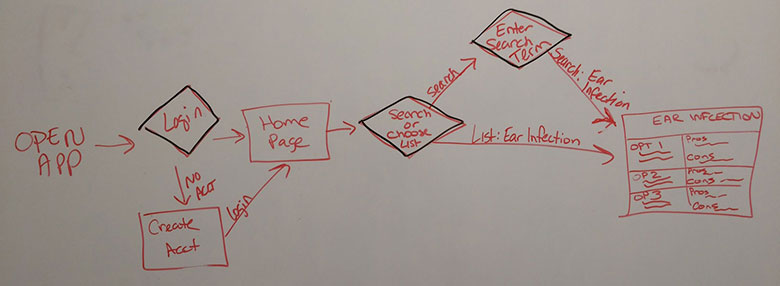 OPEN
APP
Login
NO
Acct
Create
Acct
Login
Home
Page
Search
or
choose
List
Search
Enter
Search
Term
Search: Ear
Infection
List: Ear Infection
EAR INFLECTION
OPT 1
Pros
Cons
OP 2
Pros
Cons
OP 3
Pros
Cons